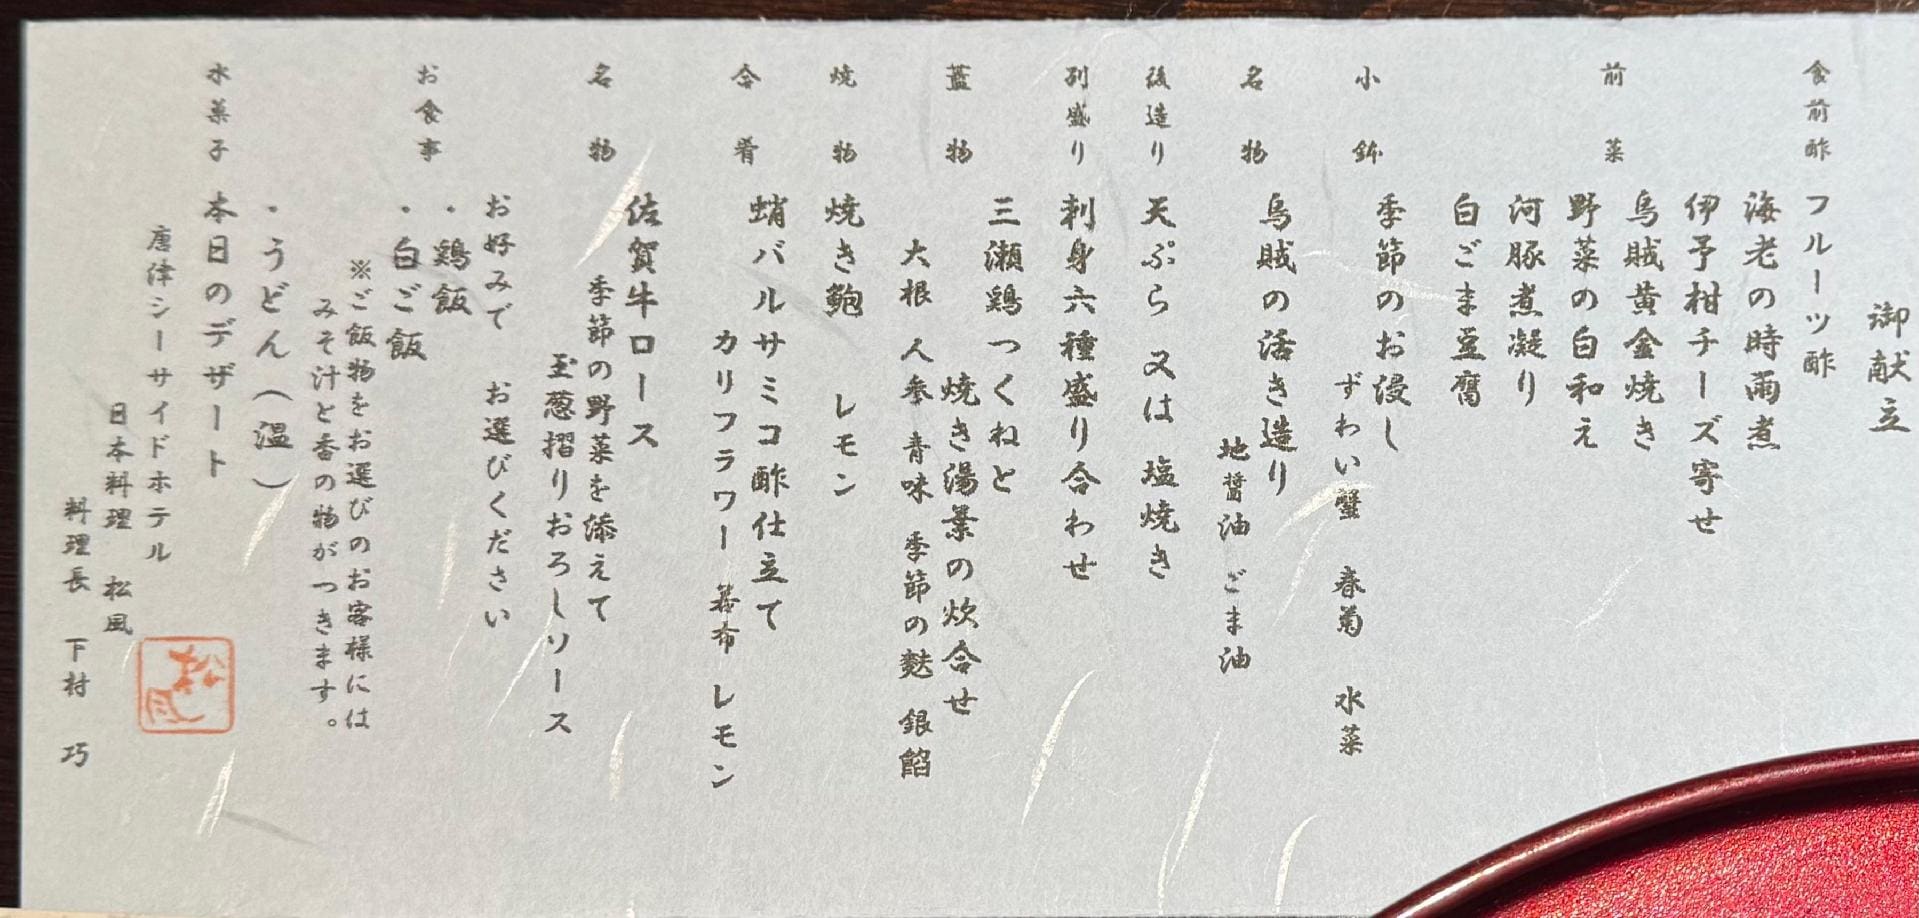 御献立
食前酢 フルーツ酢
前菜 海老の時雨煮
伊予柑チーズ寄せ
烏賊黄金焼き
野菜の白和え
河豚煮凝り
白ごま豆腐
小鉢 季節のお浸し
ずわい蟹 春菊 水菜
名物 烏賊の活き造り
地醤油 ごま油
後造り 天ぷら 又は 塩焼き
刺盛り 刺身六種盛り合わせ
蓋物 三瀬鶏つくねと
焼き湯葉の炊合せ
大根 人参 青味 季節の麩 銀餡
焼物 焼き鮑 レモン
合肴 蛸バルサミコ酢仕立て
カリフラワー 若布 レモン
名物 佐賀牛ロース
季節の野菜を添えて
玉葱摺りおろしソース
お食事 お好みで お選びください
・鶏飯
・白ご飯
※ご飯物をお選びのお客様には
みそ汁と香の物がつきます。
・うどん(温)
水菓子 本日のデザート
唐津シーサイドホテル
日本料理 松風
料理長 下村 巧
松風